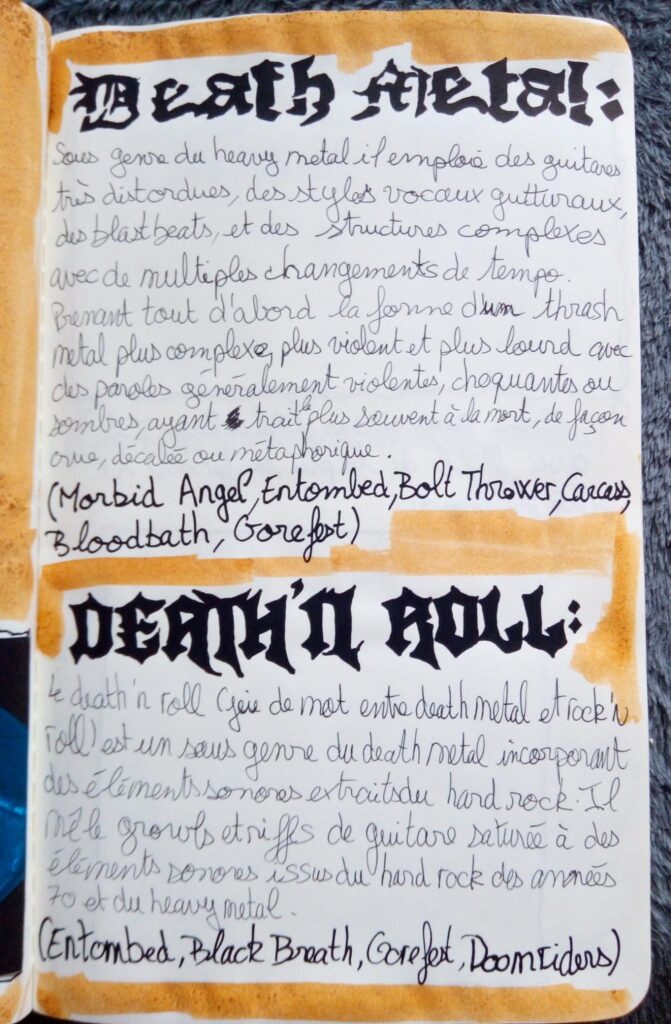 Death Metal:
Sous genre du heavy metal il emploie des guitares
très distordues, des styles vocaux gutturaux,
des blastbeats, et des structures complexes
avec de multiples changements de tempo.
Prenant tout d'abord la forme d'un thrash
metal plus complexe, plus violent et plus lourd avec
des paroles généralement violentes, choquantes ou
sombres, ayant trait le plus souvent à la mort, de façon
crue, décalée ou métaphorique.
(Morbid Angel, Entombed, Bolt Thrower, Carcass,
Bloodbath, Gorefest)
DEATH'N ROLL:
Le death'n roll (jeu de mot entre death metal et rock'n
roll) est un sous genre du death metal incorporant
des éléments sonores extraits du hard rock. Il
mêle growls et riffs de guitare saturée à des
éléments sonores issus du hard rock des années
70 et du heavy metal.
(Entombed, Black Breath, Gorefest, Doomriders)